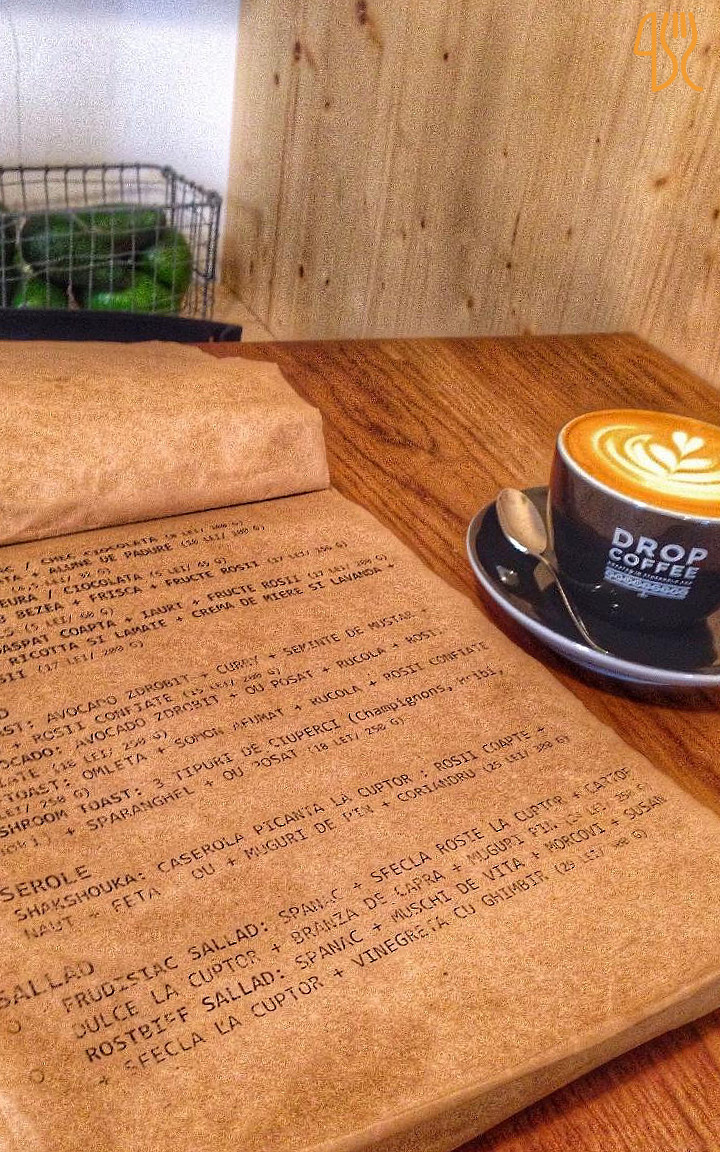 / CHEC CIOCOLATA (8 LEI/ 100 G)
+ ALUNE DE PADURE (10 LEI/ 100 G)
/ CIOCOLATA (5 LEI/ 45 G)
BEZEA + FRISCA + FRUCTE ROSII (17 LEI/ 250 G)
(5 LEI/ 60 G)
COAPTA + IAURT + FRUCTE ROSII (17 LEI/
RICOTTA SI LAMAIE + CREMA DE MIERE SI LAVANDA +
(17 LEI/ 280 G)
AVOCADO ZDROBIT + CURRY + SEMINTE DE MUSTAR +
+ ROSII CONFIATE (15 LEI/ 250 G)
AVOCADO ZDROBIT + OU POSAT + RUCOLA + ROSII
(18 LEI/ 250 G)
TOAST: OMLETA + SOMON AFUMAT + RUCOLA + ROSII CONFIATE
LEI/ 250 G)
SHROOM TOAST: 3 TIPURI DE CIUPERCI (Champignons, Hribi,
+ SPARANGHEL + OU POSAT (18 LEI/ 250 G)
SEROLE
SHAKSHOUKA: CASEROLA PICANTA LA CUPTOR : ROSII COAPTE +
NAUT + FETA OU + MUGURI DE PIN + CORIANDRU (25 LEI/ 300 G)
SALLAD
FRUDISIAC SALLAD: SPANAC + SFECLA ROSIE LA CUPTOR + CARTOF
DULCE LA CUPTOR + BRANZA DE CAPRA + MUGURI PIN
ROSTBIFF SALLAD: SPANAC + MUSCHI DE VITA + MORCOVI + SUSAN
+ SFECLA LA CUPTOR + VINEGRETA CU GHIMBIR (25 LEI/ 300 G)
DROP
COFFEE